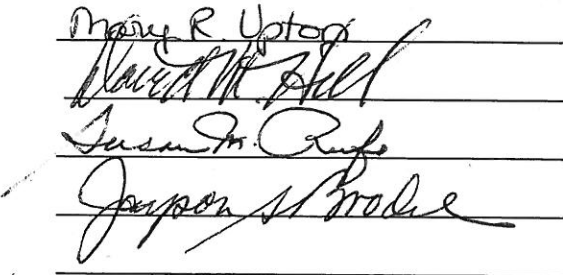 Mary R. Upton
David M. Hill
Susan M. Rufe
Jayson S Brodie